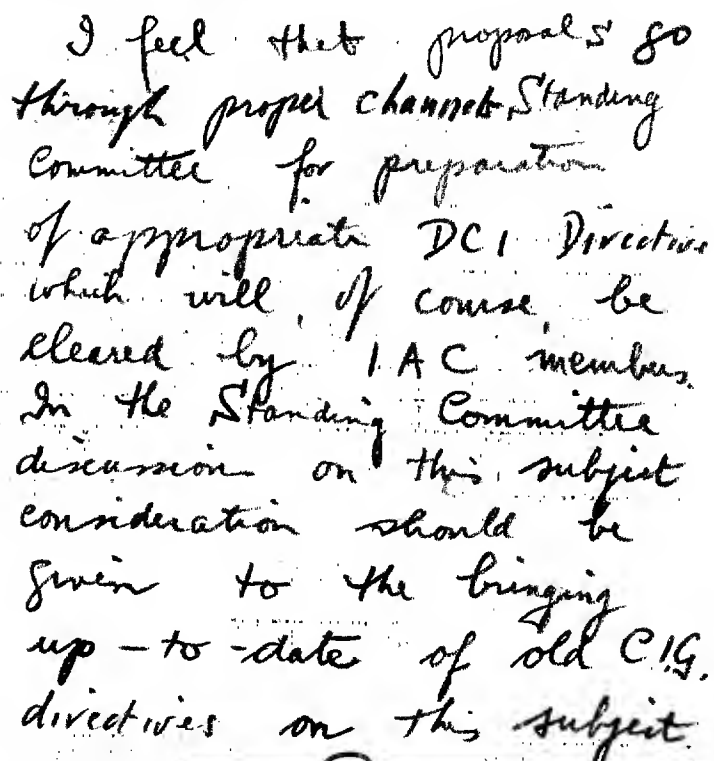 I feel that proposals go
through proper channels, Standing
Committee for preparation
of appropriate DCI Directive
which will, of course, be
cleared by IAC members.
In the Standing Committee
discussion on this subject
consideration should be
given to the bringing
up-to-date of old C.I.G.
directives on this subject.